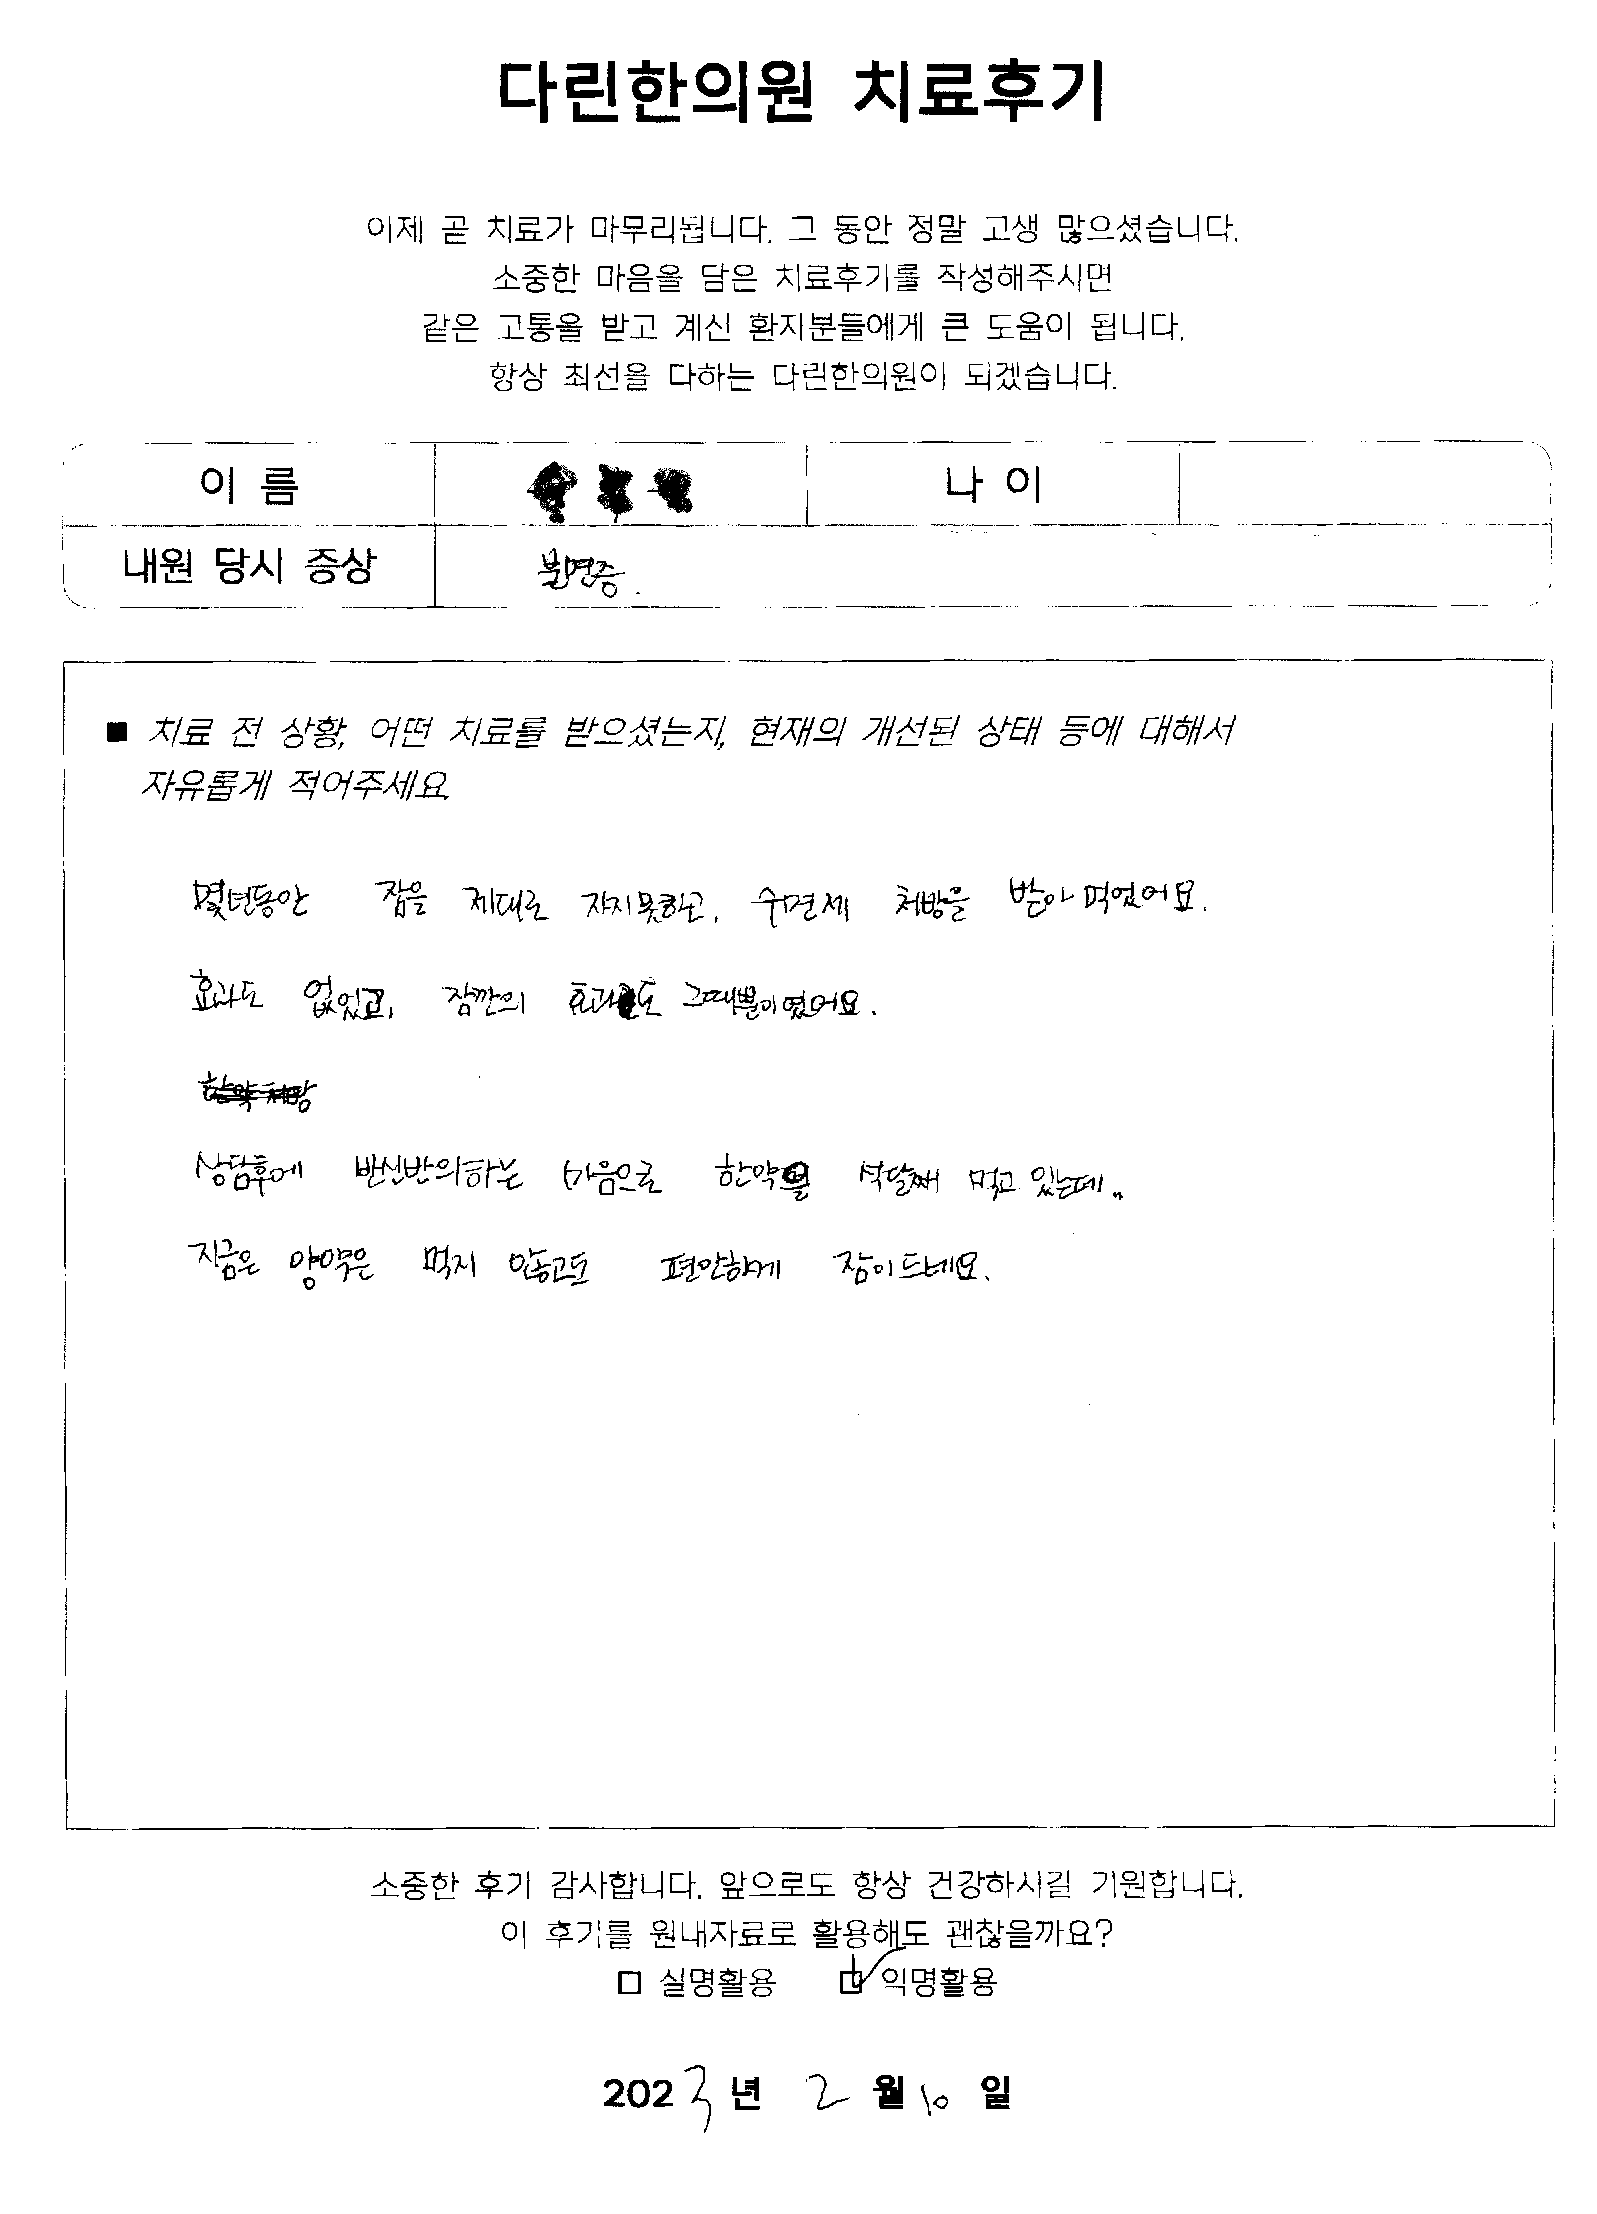 다린한의원 치료후기
이제 곧 치료가 마무리됩니다. 그 동안 정말 고생 많으셨습니다.
소중한 마음을 담은 치료후기를 작성해주시면
같은 고통을 받고 계신 환자분들에게 큰 도움이 됩니다.
항상 최선을 다하는 다린한의원이 되겠습니다.
이 름 나 이
내원 당시 증상 불면증.
■ 치료 전 상황, 어떤 치료를 받으셨는지, 현재의 개선된 상태 등에 대해서
자유롭게 적어주세요.
몇년동안 잠을 제대로 자지못하고, 수면제 처방을 받아 먹었어요.
효과도 없었고, 잠깐의 효과도 그때뿐이였어요.
한약처방
상담후에 반신반의하는 마음으로 한약을 석달째 먹고 있는데..
지금은 양약은 먹지 않고도 편안하게 잠이드네요.
소중한 후기 감사합니다. 앞으로도 항상 건강하시길 기원합니다.
이 후기를 원내자료로 활용해도 괜찮을까요?
□ 실명활용 ☑ 익명활용
2023년 2월 10일